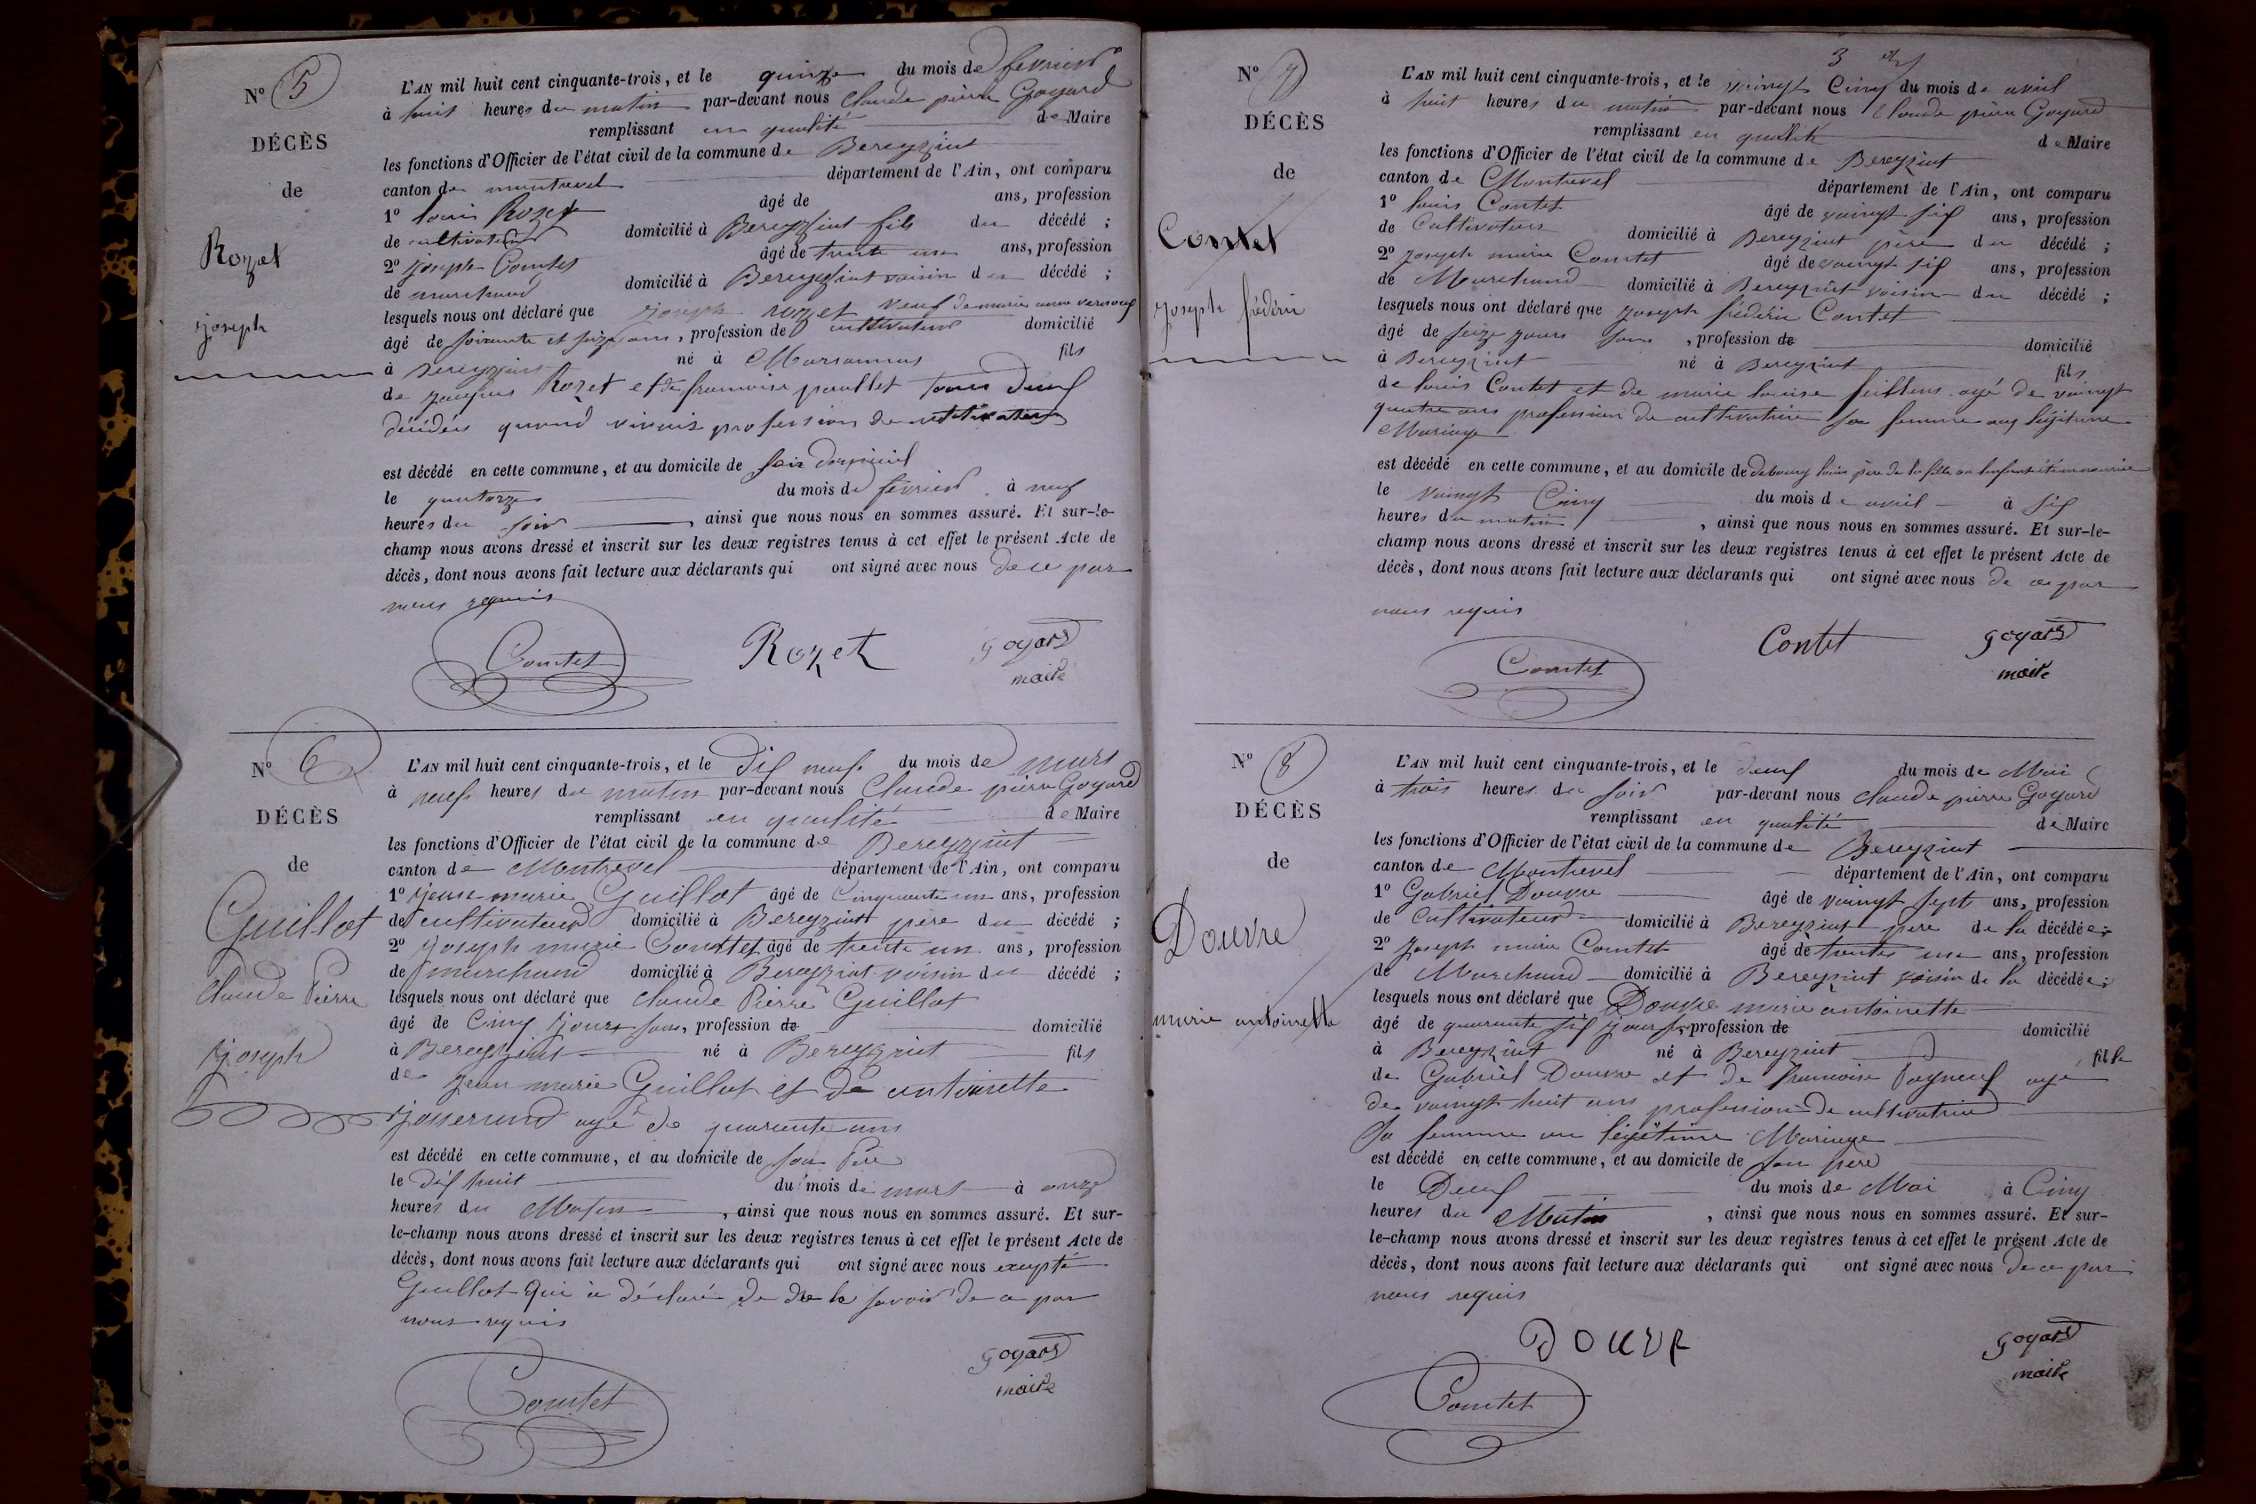 Nº 5
DÉCÈS
de
Rozet
joseph
L'AN mil huit cent cinquante-trois, et le quinze du mois de fevrier
à huit heures du matin par-devant nous Claude pierre Goyard
remplissant en qualité de Maire
les fonctions d'Officier de l'état civil de la commune de Bereyziat
canton de montrevel département de l'Ain, ont comparu
1º louis Rozet âgé de ans, profession
de cultivateur domicilié à Bereyziat fils du décédé ;
2º joseph Comtet âgé de trente un ans, profession
de marchand domicilié à Bereyziat voisin du décédé ;
lesquels nous ont déclaré que joseph rozet veuf de marie
âgé de soixante et seize ans, profession de cultivateur domicilié
à Bereyziat né à Marsonnas fils
de jaques Rozet et de francoise paullet tous deux
décédés quand vivais profession de cultivateurs
est décédé en cette commune, et au domicile de son
le quatorze du mois de février à neuf
heures du soir, ainsi que nous nous en sommes assuré. Et sur-le-
champ nous avons dressé et inscrit sur les deux registres tenus à cet effet le présent Acte de
décès, dont nous avons fait lecture aux déclarants qui ont signé avec nous de ce par
nous requis
Comtet Rozet goyard
maire
Nº 6
DÉCÈS
de
Guillot
Claude Pierre
joseph
L'AN mil huit cent cinquante-trois, et le dix neuf du mois de mars
à neuf heures du matin par-devant nous Claude pierre Goyard
remplissant en qualité de Maire
les fonctions d'Officier de l'état civil de la commune de Bereyziat
canton de Montrevel département de l'Ain, ont comparu
1º jean marie Guillot âgé de Cinquante un ans, profession
de cultivateur domicilié à Bereyziat père du décédé ;
2º joseph marie Comtet âgé de trente un ans, profession
de marchand domicilié à Bereyziat voisin du décédé ;
lesquels nous ont déclaré que Claude Pierre Guillot
âgé de Cinq jours sans, profession de domicilié
à Bereyziat né à Bereyziat fils
de jean marie Guillot et de antoinette
josserand agé de quarente ans
est décédé en cette commune, et au domicile de son Père
le dix huit du mois de mars à onze
heures du Matin, ainsi que nous nous en sommes assuré. Et sur-
le-champ nous avons dressé et inscrit sur les deux registres tenus à cet effet le présent Acte de
décès, dont nous avons fait lecture aux déclarants qui ont signé avec nous excepté
Guillot qui a déclaré de ne le savoir de ce par
nous requis
Comtet goyard
maire
Nº 7
DÉCÈS
de
Contet
joseph fédéric
3
L'AN mil huit cent cinquante-trois, et le vaingt Cinq du mois de avril
à huit heures du matin par-devant nous Claude pierre Goyard
remplissant en qualité de Maire
les fonctions d'Officier de l'état civil de la commune de Bereyziat
canton de Montrevel département de l'Ain, ont comparu
1º louis Contet âgé de vaingt six ans, profession
de Cultivateur domicilié à Bereyziat père du décédé ;
2º joseph marie Comtet âgé de vaingt six ans, profession
de Marchand domicilié à Bereyziat voisin du décédé ;
lesquels nous ont déclaré que joseph fédéric Contet
âgé de seize jours sans, profession de domicilié
à Bereyziat né à Bereyziat fils
de louis Contet et de marie louise agé de vaingt
quatre ans profession de cultivatrice sa femme légitime
Mariage
est décédé en cette commune, et au domicile de louis père de la fille
le vaingt Cinq du mois de avril à six
heures du matin, ainsi que nous nous en sommes assuré. Et sur-le-
champ nous avons dressé et inscrit sur les deux registres tenus à cet effet le présent Acte de
décès, dont nous avons fait lecture aux déclarants qui ont signé avec nous de ce par
nous requis
Comtet Contet goyard
maire
Nº 8
DÉCÈS
de
Douvre
marie antoinette
L'AN mil huit cent cinquante-trois, et le deux du mois de Mai
à trois heures du soir par-devant nous Claude pierre Goyard
remplissant en qualité de Maire
les fonctions d'Officier de l'état civil de la commune de Bereyziat
canton de Montrevel département de l'Ain, ont comparu
1º Gabriel Douvre âgé de vaingt sept ans, profession
de Cultivateur domicilié à Bereyziat père de la décédée ;
2º joseph marie Comtet âgé de trente un ans, profession
de Marchand domicilié à Bereyziat voisin de la décédée ;
lesquels nous ont déclaré que Douvre marie antoinette
âgé de quarante six jours, profession de domicilié
à Bereyziat né à Bereyziat fille
de Gabriel Douvre et de francoise agé
de vaingt huit ans profession de cultivatrice
sa femme en légitime Mariage
est décédé en cette commune, et au domicile de son père
le Deux du mois de Mai à Cinq
heures du Matin, ainsi que nous nous en sommes assuré. Et sur-
le-champ nous avons dressé et inscrit sur les deux registres tenus à cet effet le présent Acte de
décès, dont nous avons fait lecture aux déclarants qui ont signé avec nous de ce par
nous requis
DOUVR goyard
Comtet maire